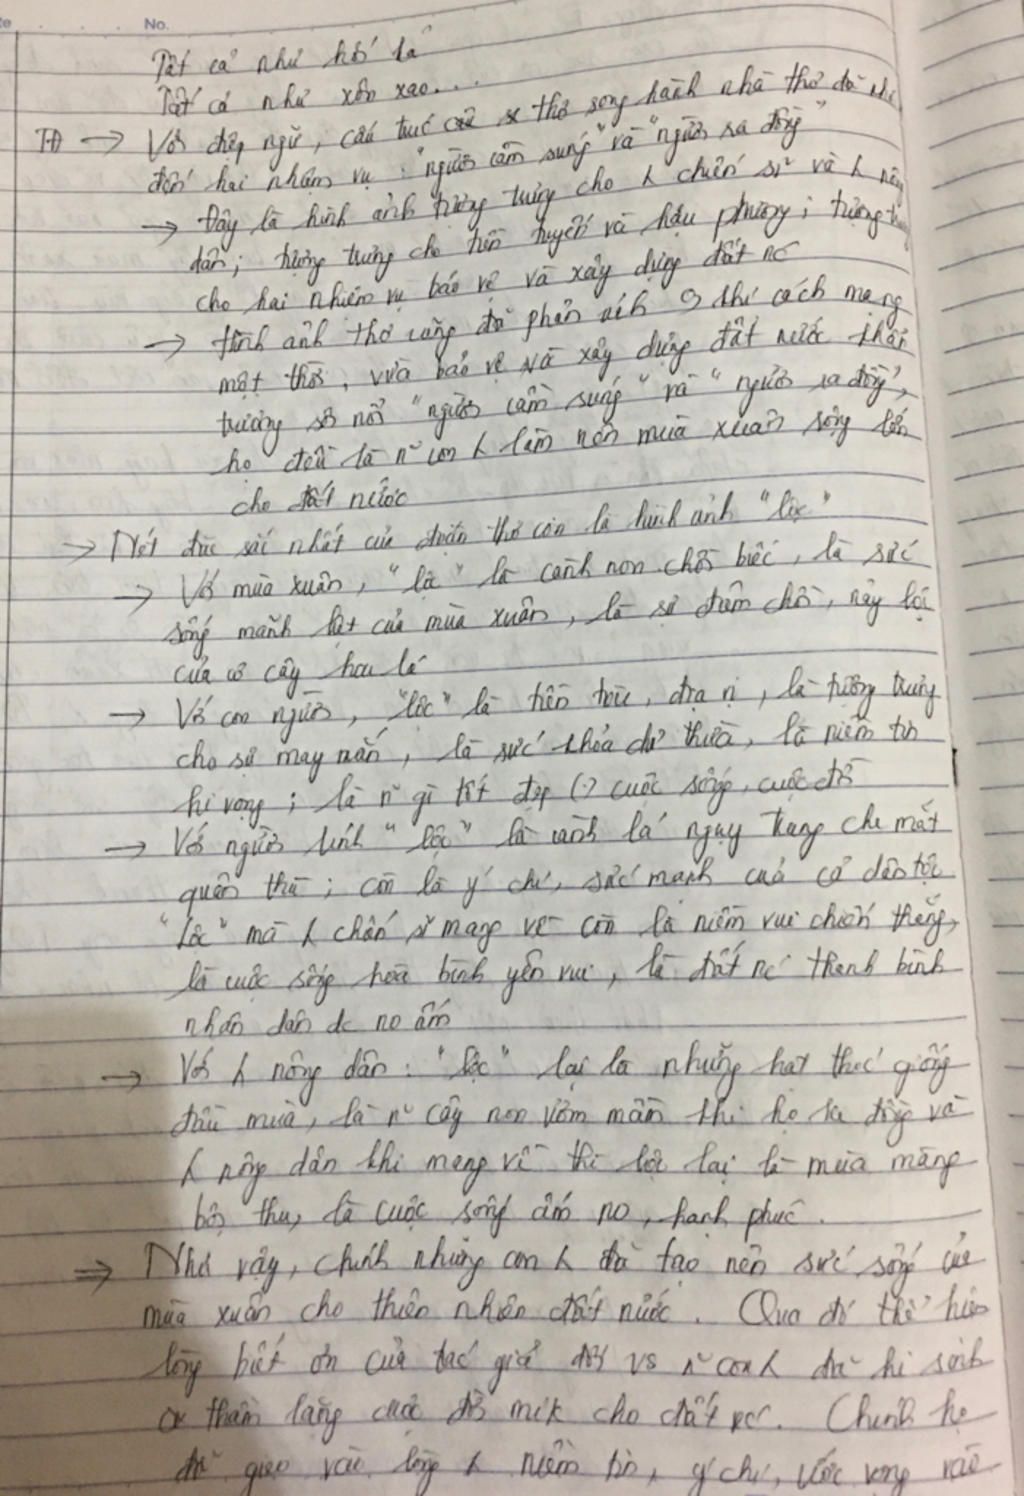 No.
Tất cả như hối hả
Tất cả như xôn xao...
TĐ → Với điệp ngữ, cấu trúc thơ song hành nhà thơ đã
đến hai nhiệm vụ : "người cầm súng" và "người ra đồng"
→ Đây là hình ảnh tượng trưng cho k chiến sĩ và k nông
dân; tượng trưng cho tiền tuyến và hậu phương; tượng trưng
cho hai nhiệm vụ bảo vệ và xây dựng đất nc
→ Hình ảnh thơ cũng đã phản ánh thơ cách mạng
một thời, vừa bảo vệ và xây dựng đất nước khẩn
trương sôi nổi "người cầm súng" và "người ra đồng",
họ đều là n~ con k làm nên mùa xuân sống lớn
cho đất nước
→ Nét đặc sắc nhất của đoạn thơ còn là hình ảnh "lộc"
→ Với mùa xuân, "lộc" là cành non chồi biếc, là sức
sống mãnh liệt của mùa xuân, là sự đâm chồi, nảy lộc
của cỏ cây hoa lá
→ Với con người, "lộc" là tiền tài, địa vị, là tượng trưng
cho sự may mắn, là sức khỏe dư thừa, là niềm tin
hi vọng ; là n~ gì tốt đẹp (.) cuộc sống, cuộc đời
→ Với người lính "lộc" là cành lá ngụy trang che mắt
quân thù ; còn là ý chí, sức mạnh của cả dân tộc
"Lộc" mà k chiến sĩ mang về còn là niềm vui chiến thắng,
là cuộc sống hoà bình yên vui, là đất nc thanh bình
nhân dân đc no ấm
→ Với k nông dân : "lộc" lại là những hạt thóc giống
đầu mùa, là n~ cây non mầm khi họ ra đồng và
k nông dân khi mang về thì lộc lại là mùa màng
bội thu, là cuộc sống ấm no, hạnh phúc.
⇒ Như vậy, chính những con k đã tạo nên sức sống của
mùa xuân cho thiên nhiên đất nước. Qua đó thể hiện
lòng biết ơn của tác giả đối vs n~ con k đã hi sinh
thầm lặng cuộc đời mik cho đất nc. Chính họ
đã gieo vào lòng k niềm tin, ý chí, ước vọng vào